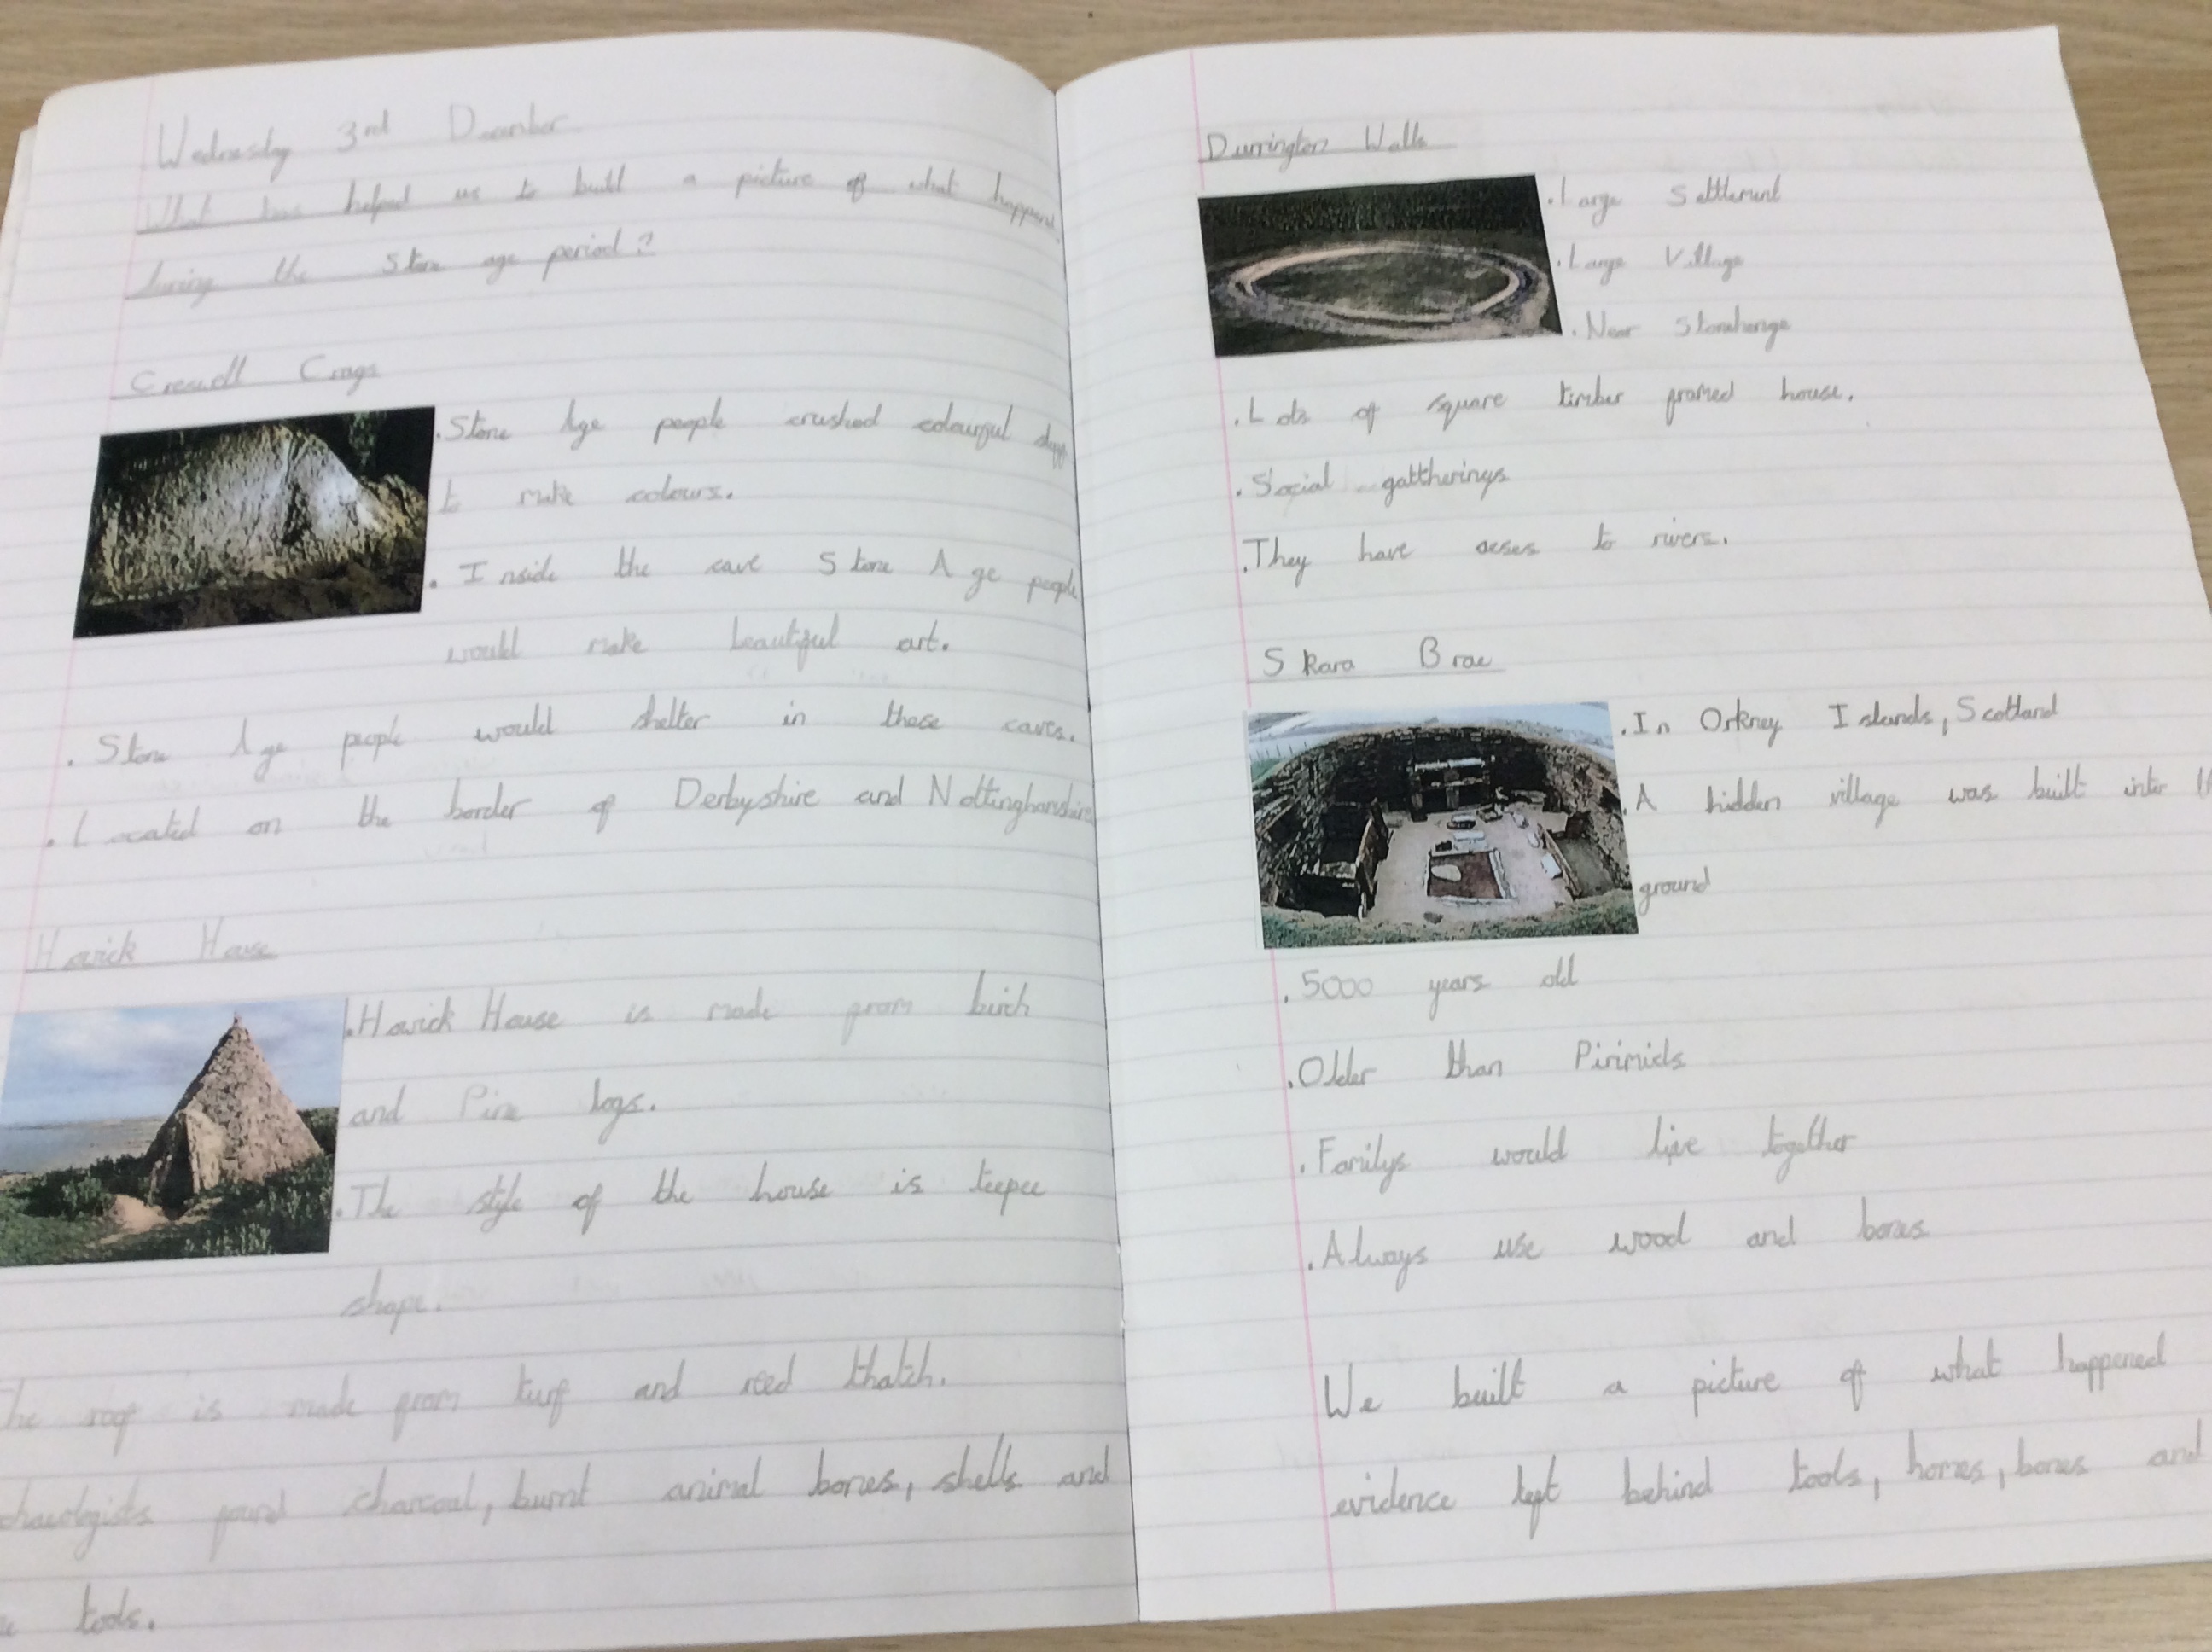 Wednesday 3rd December
What has helped us to built a picture of what happened
during the Stone age period?
Creswell Crags
. Stone Age people crushed colourful
to make colours.
. Inside the cave Stone Age people
would make beautiful art.
. Stone Age people would shelter in these caves.
. Located on the border of Derbyshire and Nottinghamshire
Howick House
. Howick House is made from birch
and Pine logs.
. The style of the house is teepee
shape.
The roof is made from turf and reed thatch.
found charcoal, burnt animal bones, shells and
tools.
Durrington Walls
. Large Settlement
. Large Village
. Near Stonehenge
. Lots of square timber framed house.
. Social gattherings
. They have acses to rivers.
Skara Brae
. In Orkney Islands, Scotland
. A hidden village was built inter
ground
. 5000 years old
. Older than Pirimids
. Familys would live together
. Always use wood and bones
We built a picture of what happened
evidence left behind tools, homes, bones and